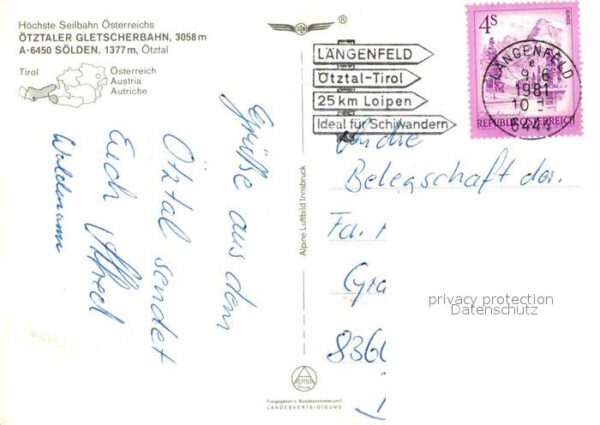 Höchste Seilbahn Österreichs
ÖTZTALER GLETSCHERBAHN, 3058 m
A-6450 SÖLDEN, 1377 m, Ötztal
Tirol
Österreich
Austria
Autriche
Grüße aus dem
Ötztal sendet
Euch Alfred
Alpine Luftbild Innsbruck
ALPINE
Freigegeben v. Bundesministerium f.
LANDESVERTEIDIGUNG
LÄNGENFELD
Ötztal-Tirol
25 km Loipen
Ideal für Schiwandern
4S
LÄNGENFELD
e
9.6
1981
10
6444
REPUBLIK ÖSTERREICH
An die
Belegschaft der
Fa.
Gra
836
privacy protection
Datenschutz